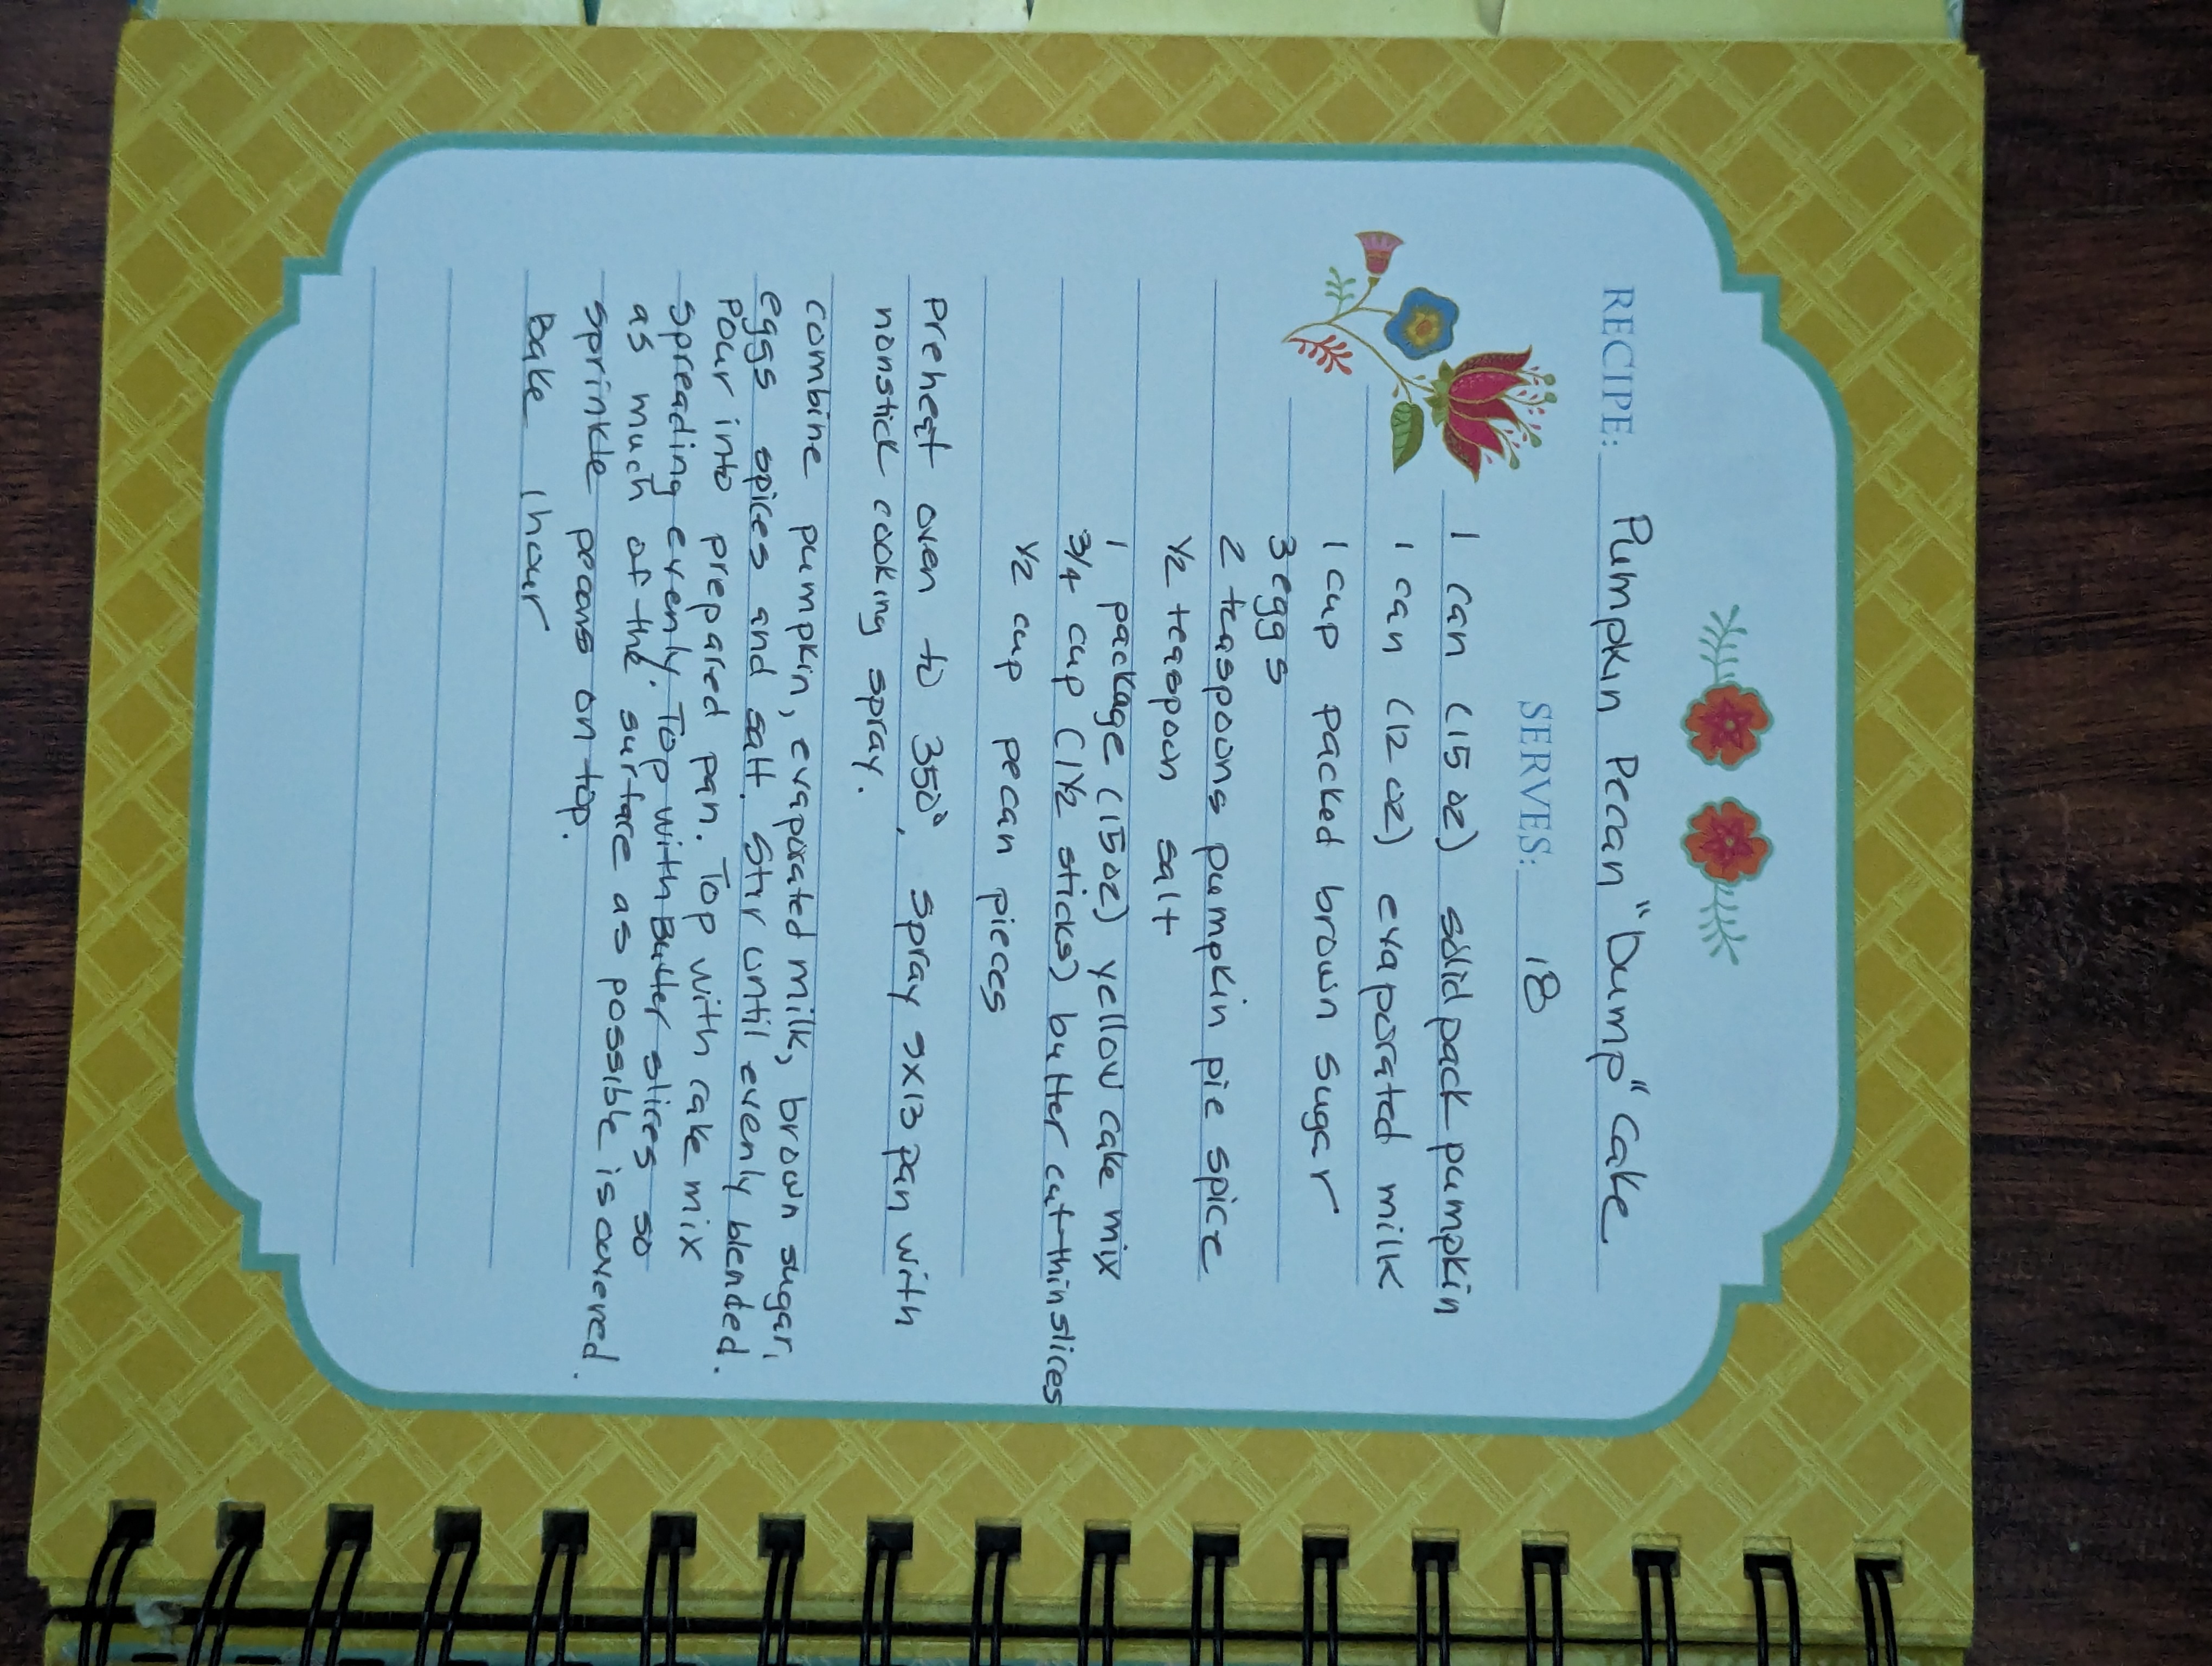 RECIPE: Pumpkin Pecan "Dump" Cake
SERVES: 18
1 can (15 oz) solid pack pumpkin
1 can (12 oz) evaporated milk
1 cup packed brown sugar
3 eggs
2 teaspoons pumpkin pie spice
1/2 teaspoon salt
1 package (15 oz) yellow cake mix
3/4 cup (1 1/2 sticks) butter cut thin slices
1/2 cup pecan pieces
Preheat oven to 350°. Spray 9x13 pan with
nonstick cooking spray.
combine pumpkin, evaporated milk, brown sugar,
eggs spices and salt. Stir until evenly blended.
Pour into prepared pan. Top with cake mix
spreading evenly. Top with Butter slices so
as much of the surface as possible is covered.
sprinkle pecans on top.
Bake 1 hour